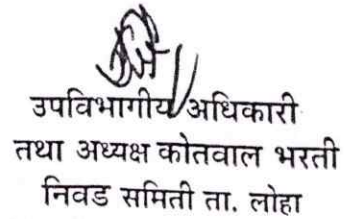 उपविभागीय अधिकारी
तथा अध्यक्ष कोतवाल भरती
निवड समिती ता. लोहा